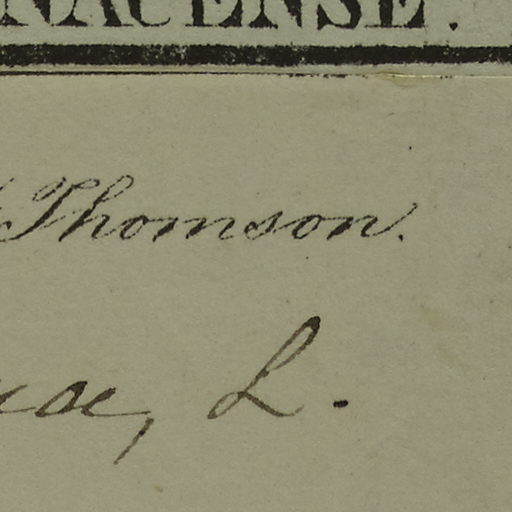 NACENSE.
Thomson.
L.